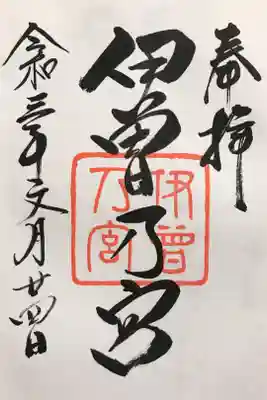 奉拝
伊曽乃宮
伊曽
乃宮
令和三年文月廿四日